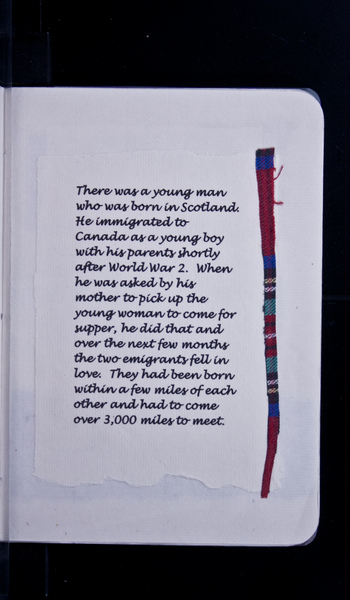 There was a young man
who was born in Scotland.
He immigrated to
Canada as a young boy
with his parents shortly
after World War 2.  When
he was asked by his
mother to pick up the
young woman to come for
supper, he did that and
over the next few months
the two emigrants fell in
love.  They had been born
within a few miles of each
other and had to come
over 3,000 miles to meet.